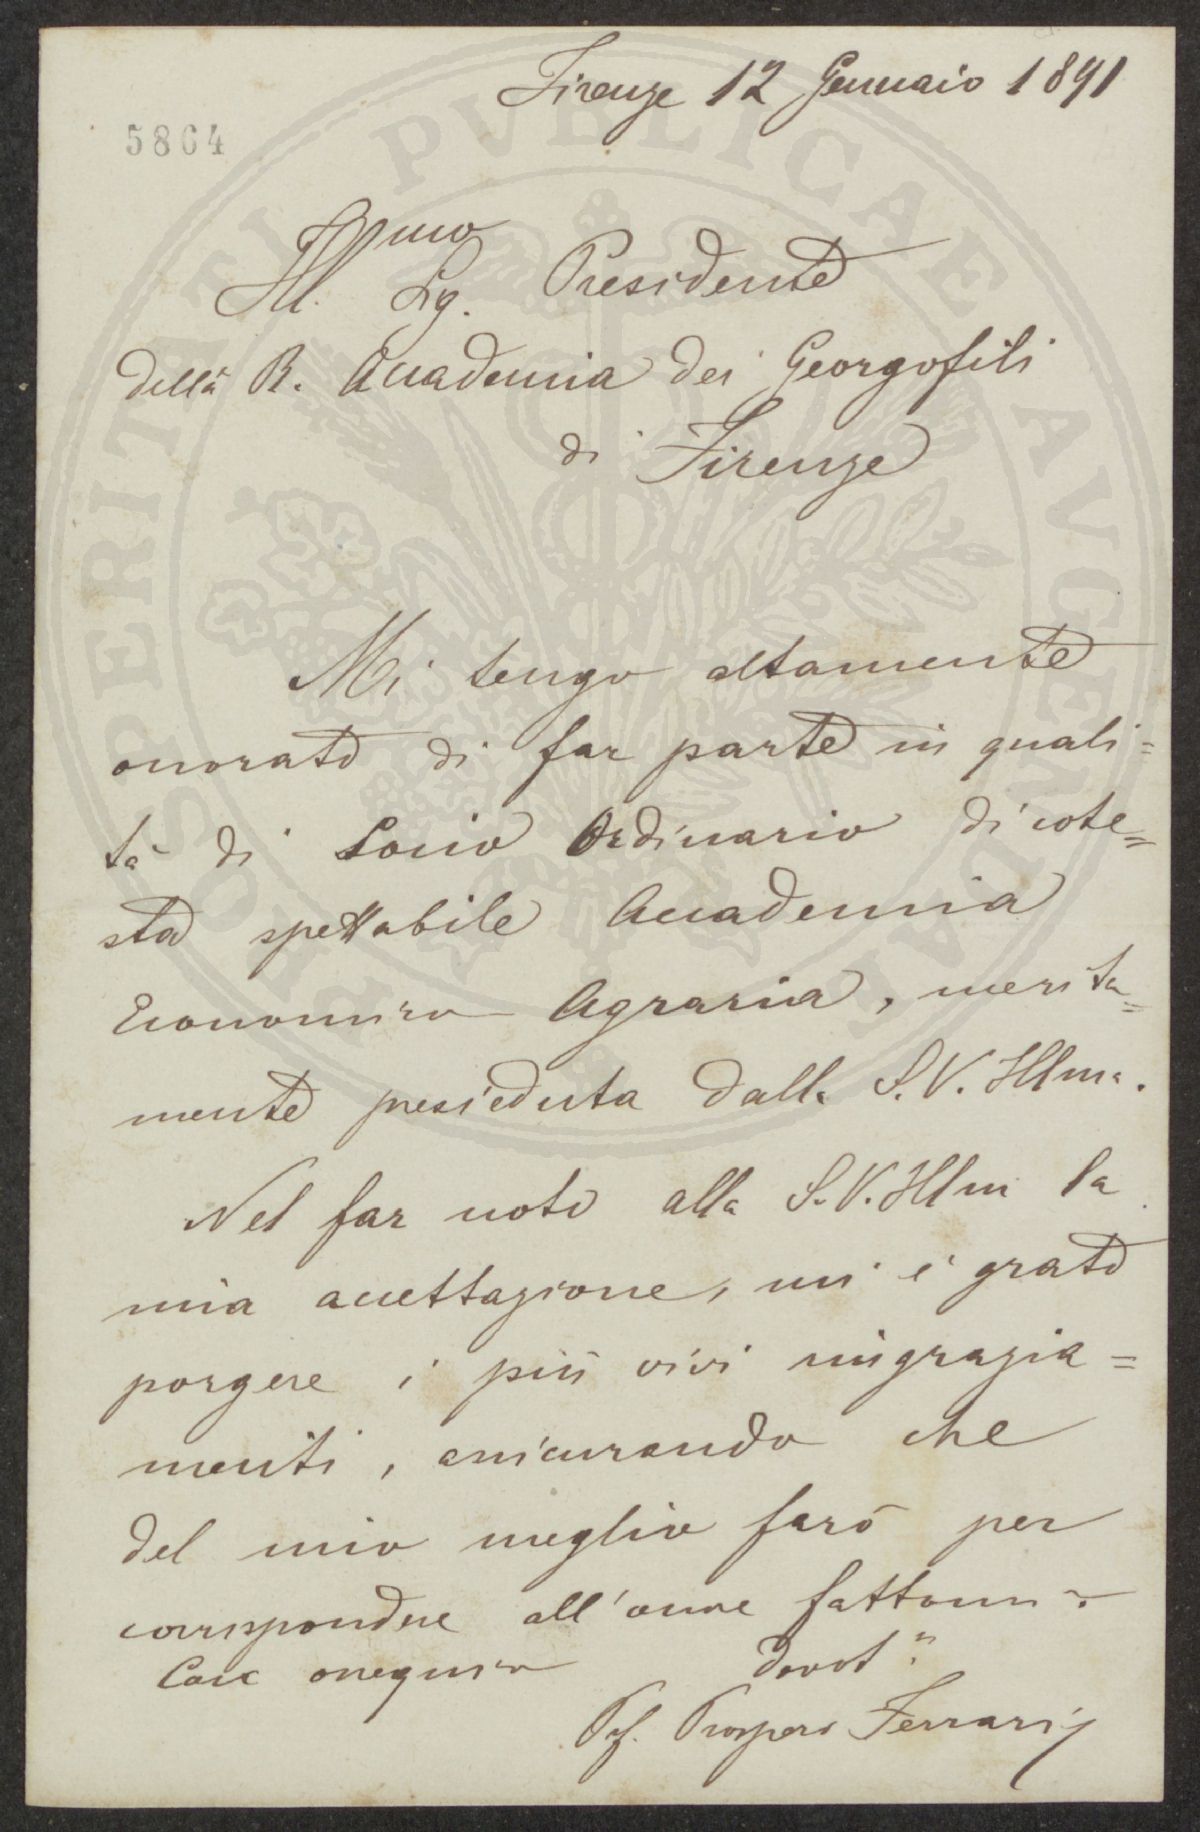 Firenze 12 Gennaio 1891
5864
Ill.mo Sig. Presidente
della R. Accademia dei Georgofili
di Firenze
Mi tengo altamente
onorato di far parte in quali=
tà di Socio Ordinario di cote=
sta spettabile Accademia
Economico Agraria, merita=
mente presieduta dalla S.V. Illma.
Nel far noto alla S.V. Illm la
mia accettazione, mi è grato
porgere i più vivi ringrazia=
menti, assicurando che
del mio meglio farò per
corrispondere all'onore fattomi.
Con ossequio devot.
Pf. Prospero Ferrari
PROSPERITATI PVBLICAE AVGENDAE